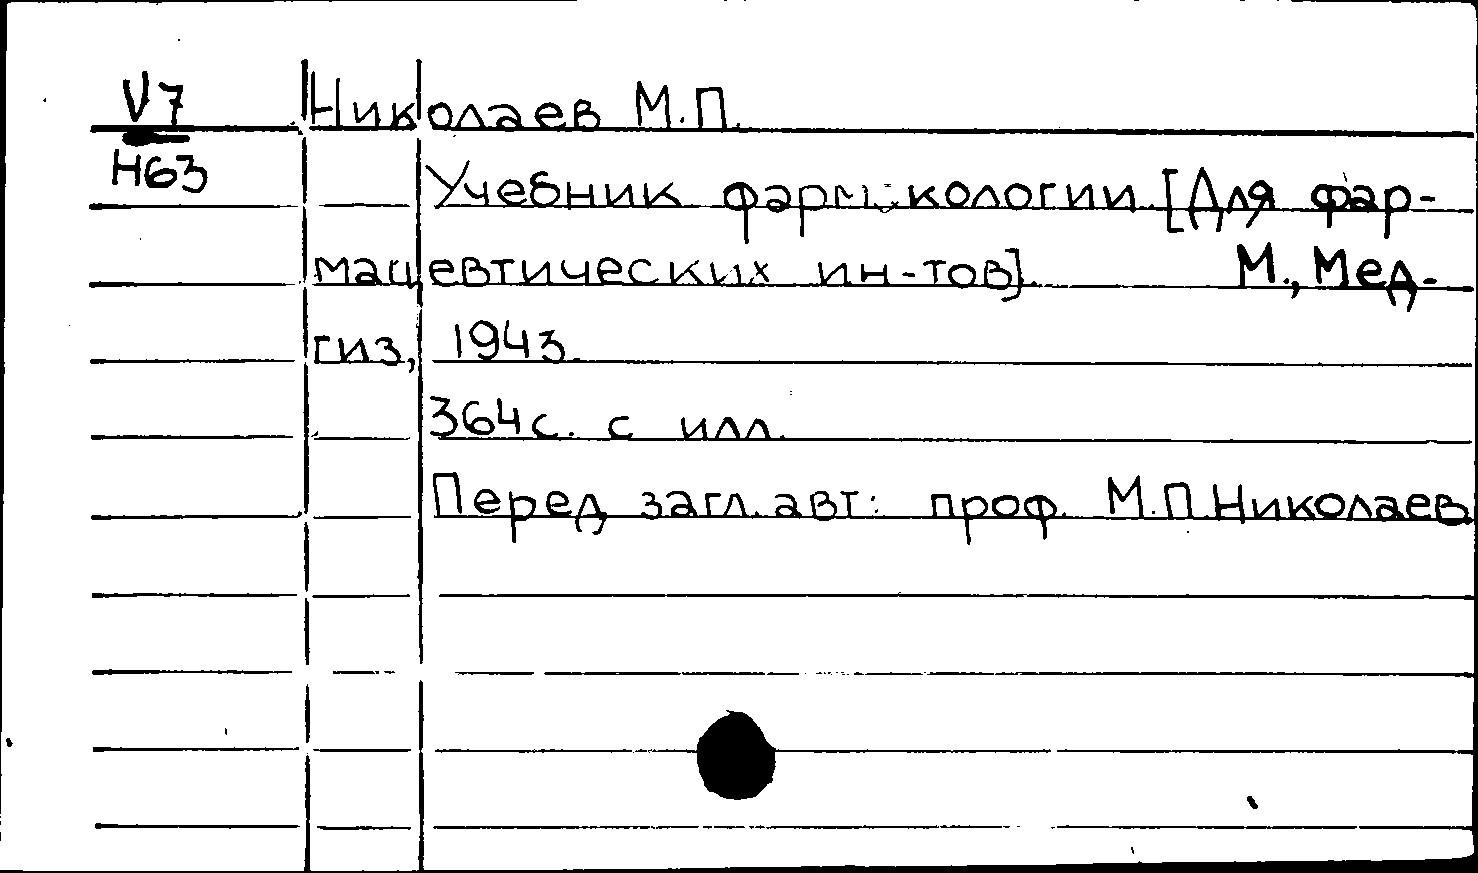 V7
Н63
Николаев М.П.
Учебник фармакологии [Для фар-
мацевтических ин-тов]. М., Мед-
гиз, 1943.
364с. с илл.
Перед загл. авт: проф. М.П.Николаев